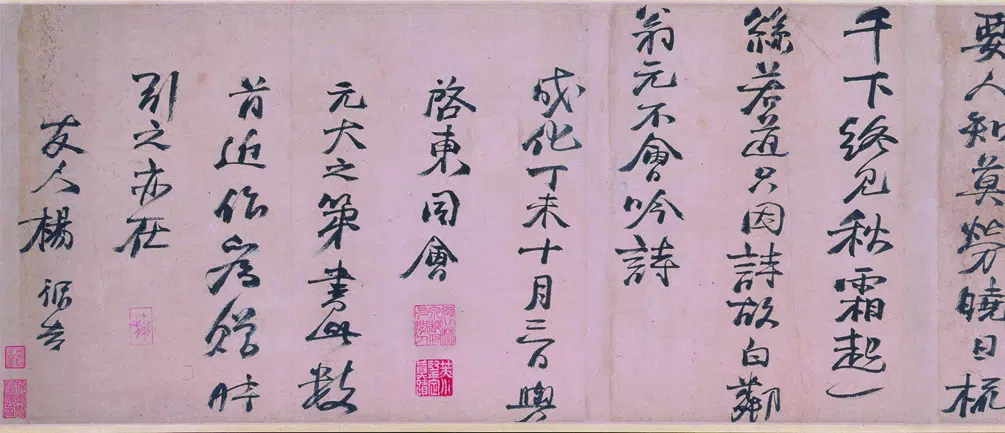 要人知莫勞曉日梳
千下終見秋霜起一
絲若道只因詩故白鄰
翁元不會吟詩
成化丁未十月三日與
啓東同會
元大之第書此數
首近作為贈時
引之亦在
友人楊循吉